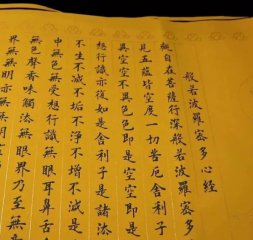 般若波羅蜜多心經
觀自在菩薩行深般若波羅蜜多
見五蘊皆空度一切苦厄舍利子
異空空不異色色即是空空即是
想行識亦復如是舍利子是諸法
不生不滅不垢不淨不增不減是
中無色無受想行識無眼耳鼻舌
無色聲香味觸法無眼界乃至無
界無無明亦無無明